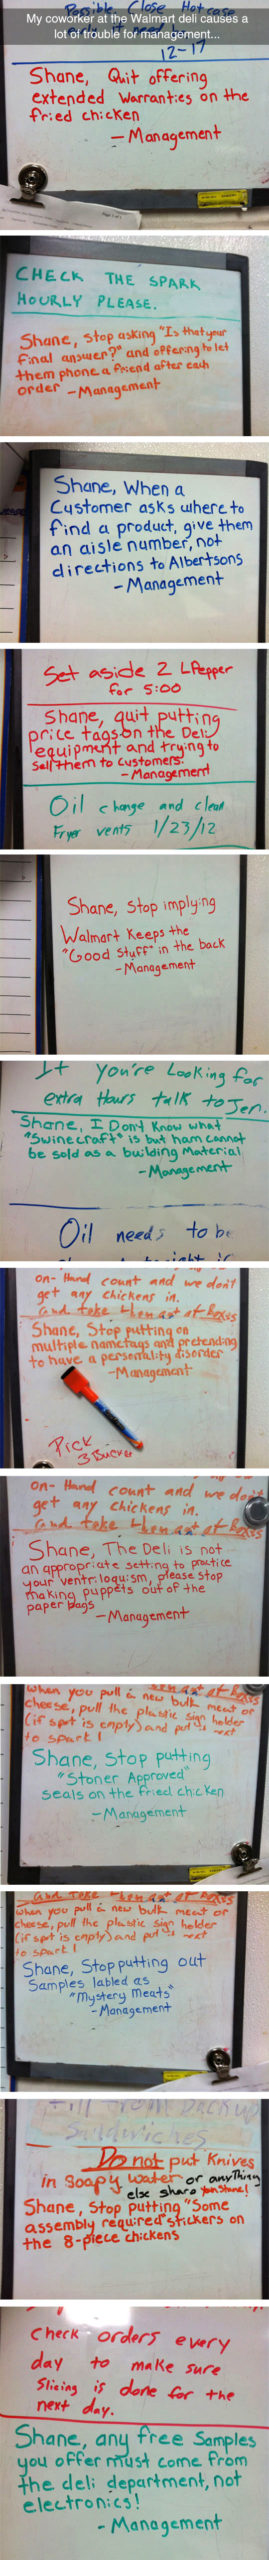 Possible. Close Hot case
My coworker at the Walmart deli causes a
lot of trouble for management...
12-17
Shane, Quit offering
extended Warranties on the
fried chicken
— Management
CHECK THE SPARK
HOURLY PLEASE.
Shane, Stop asking "Is that your
final answer?" and offering to let
them phone a friend after each
order -Management
Shane, When a
Customer asks where to
find a product, give them
an aisle number, not
directions to Albertsons
- Management
Set aside 2 LPepper
for 5:00
Shane, quit putting
price tags on the Deli
equipment and trying to
sell them to customers.
- Management
Oil change and clean
Fryer vents 1/23/12
Shane, Stop implying
Walmart Keeps the
"Good Stuff" in the back
- Management
If you're Looking for
extra Hours talk to Jen.
Shane, I Don't Know what
"Swinecraft" is but ham cannot
be sold as a building Material
- Management
Oil needs to be
on-Hand count and we don't
get any chickens in.
and take them out of Boxes
Shane, Stop putting on
multiple nametags and pretending
to have a personality disorder
-Management
Pick
3 Bucket
on-Hand count and we don't
get any chickens in.
and take them out of Boxes
Shane, The Deli is not
an appropriate setting to practice
your ventriloquism, please stop
making puppets out of the
paper bags
- Management
them out of Boxes
when you pull a new bulk meat or
cheese, pull the plastic sign holder
(if spot is empty) and put next
to spark!
Shane, Stop putting
"Stoner Approved"
seals on the fried chicken
- Management
and take them out of Boxes
when you pull a new bulk meat or
cheese, pull the plastic sign holder
(if spot is empty) and put next
to spark!
Shane, Stop putting out
Samples labled as
"Mystery Meats"
- Management
Sandwiches
Do not put Knives
in Soapy water or anything
else sharp
Shane, Stop putting "Some
assembly required" stickers on
the 8-piece chickens
Check orders every
day to make sure
Slicing is done for the
next day.
Shane, any free Samples
you offer must come from
the deli department, not
electronics!
- Management